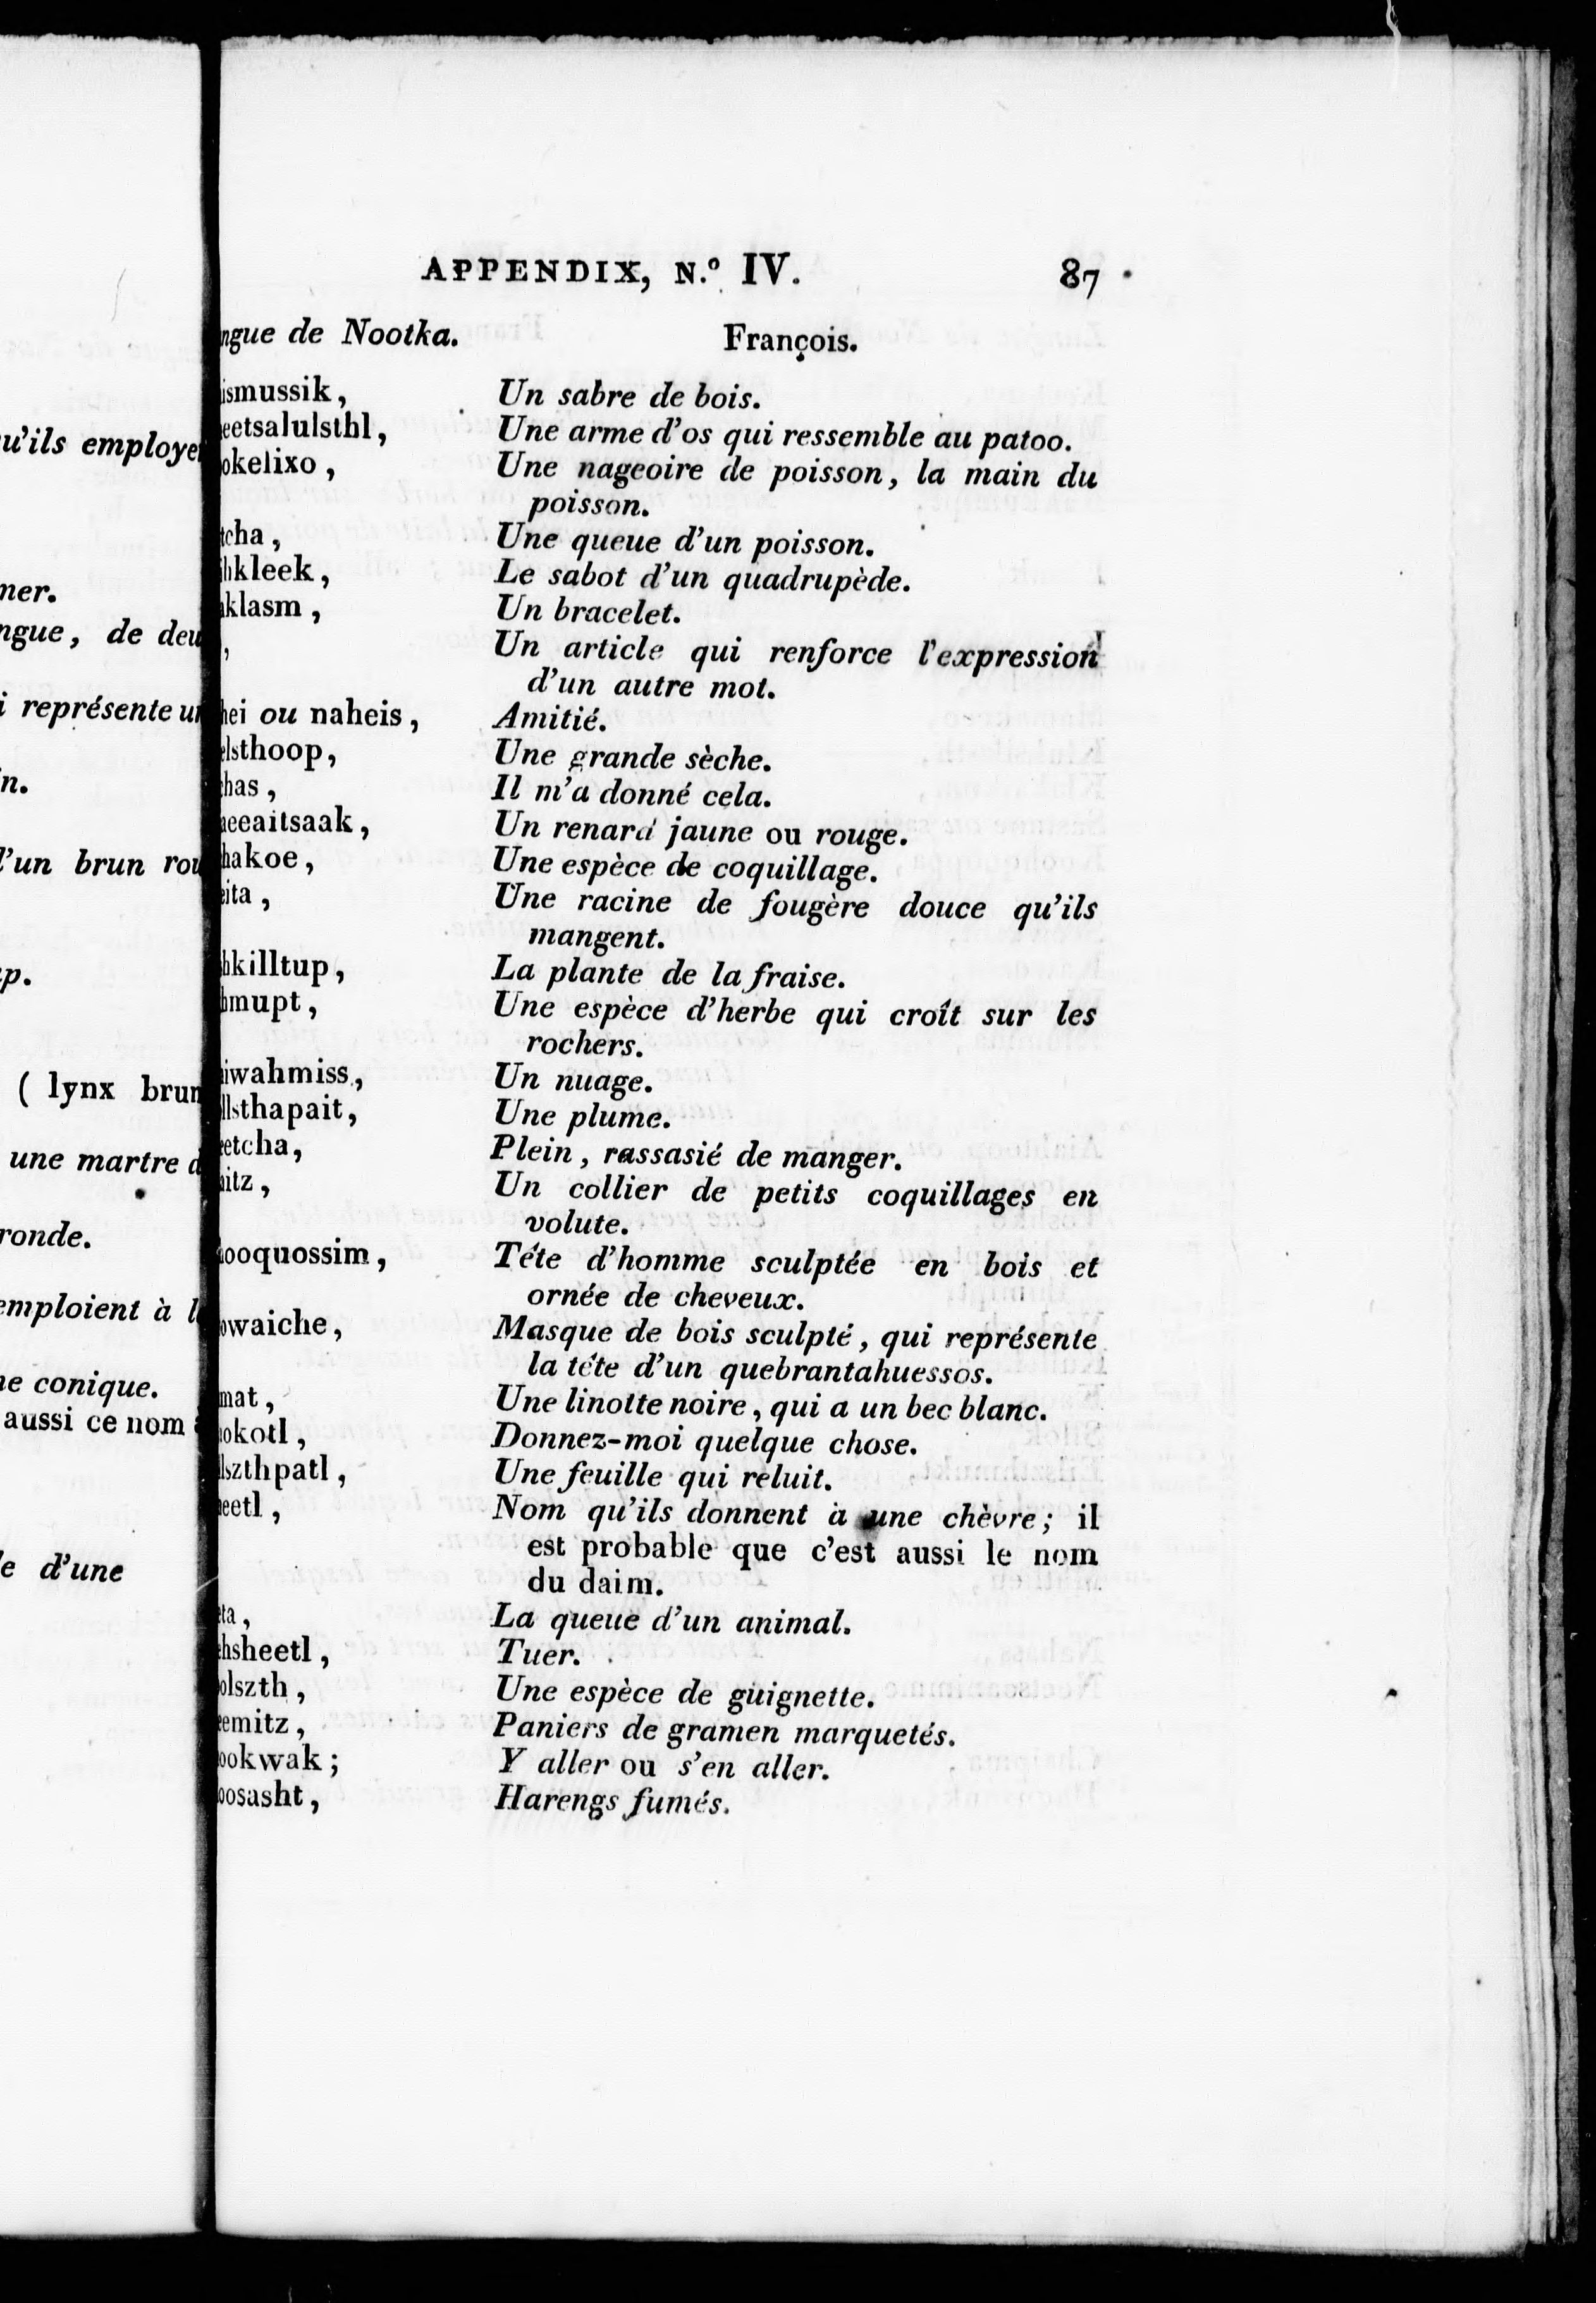 APPENDIX, N.º IV. 87
ngue de Nootka. François.
ismussik, Un sabre de bois.
eetsalulsthl, Une arme d'os qui ressemble au patoo.
okelixo, Une nageoire de poisson, la main du
poisson.
tcha, Une queue d'un poisson.
hkleek, Le sabot d'un quadrupède.
klasm, Un bracelet.
, Un article qui renforce l'expression
d'un autre mot.
hei ou naheis, Amitié.
elsthoop, Une grande sèche.
has, Il m'a donné cela.
eeaitsaak, Un renard jaune ou rouge.
hakoe, Une espèce de coquillage.
eita, Une racine de fougère douce qu'ils
mangent.
hkilltup, La plante de la fraise.
hmupt, Une espèce d'herbe qui croît sur les
rochers.
iwahmiss, Un nuage.
llsthapait, Une plume.
etcha, Plein, rassasié de manger.
itz, Un collier de petits coquillages en
volute.
ooquossim, Téte d'homme sculptée en bois et
ornée de cheveux.
owaiche, Masque de bois sculpté, qui représente
la téte d'un quebrantahuessos.
mat, Une linotte noire, qui a un bec blanc.
okotl, Donnez-moi quelque chose.
lszthpatl, Une feuille qui reluit.
eetl, Nom qu'ils donnent à une chèvre; il
est probable que c'est aussi le nom
du daim.
ta, La queue d'un animal.
hsheetl, Tuer.
olszth, Une espèce de guignette.
emitz, Paniers de gramen marquetés.
ookwak; Y aller ou s'en aller.
oosasht, Harengs fumés.
u'ils employe
ner.
ngue, de deu
i représente un
n.
l'un brun rou
p.
( lynx brun
une martre d
ronde.
emploient à l
e conique.
aussi ce nom
e d'une